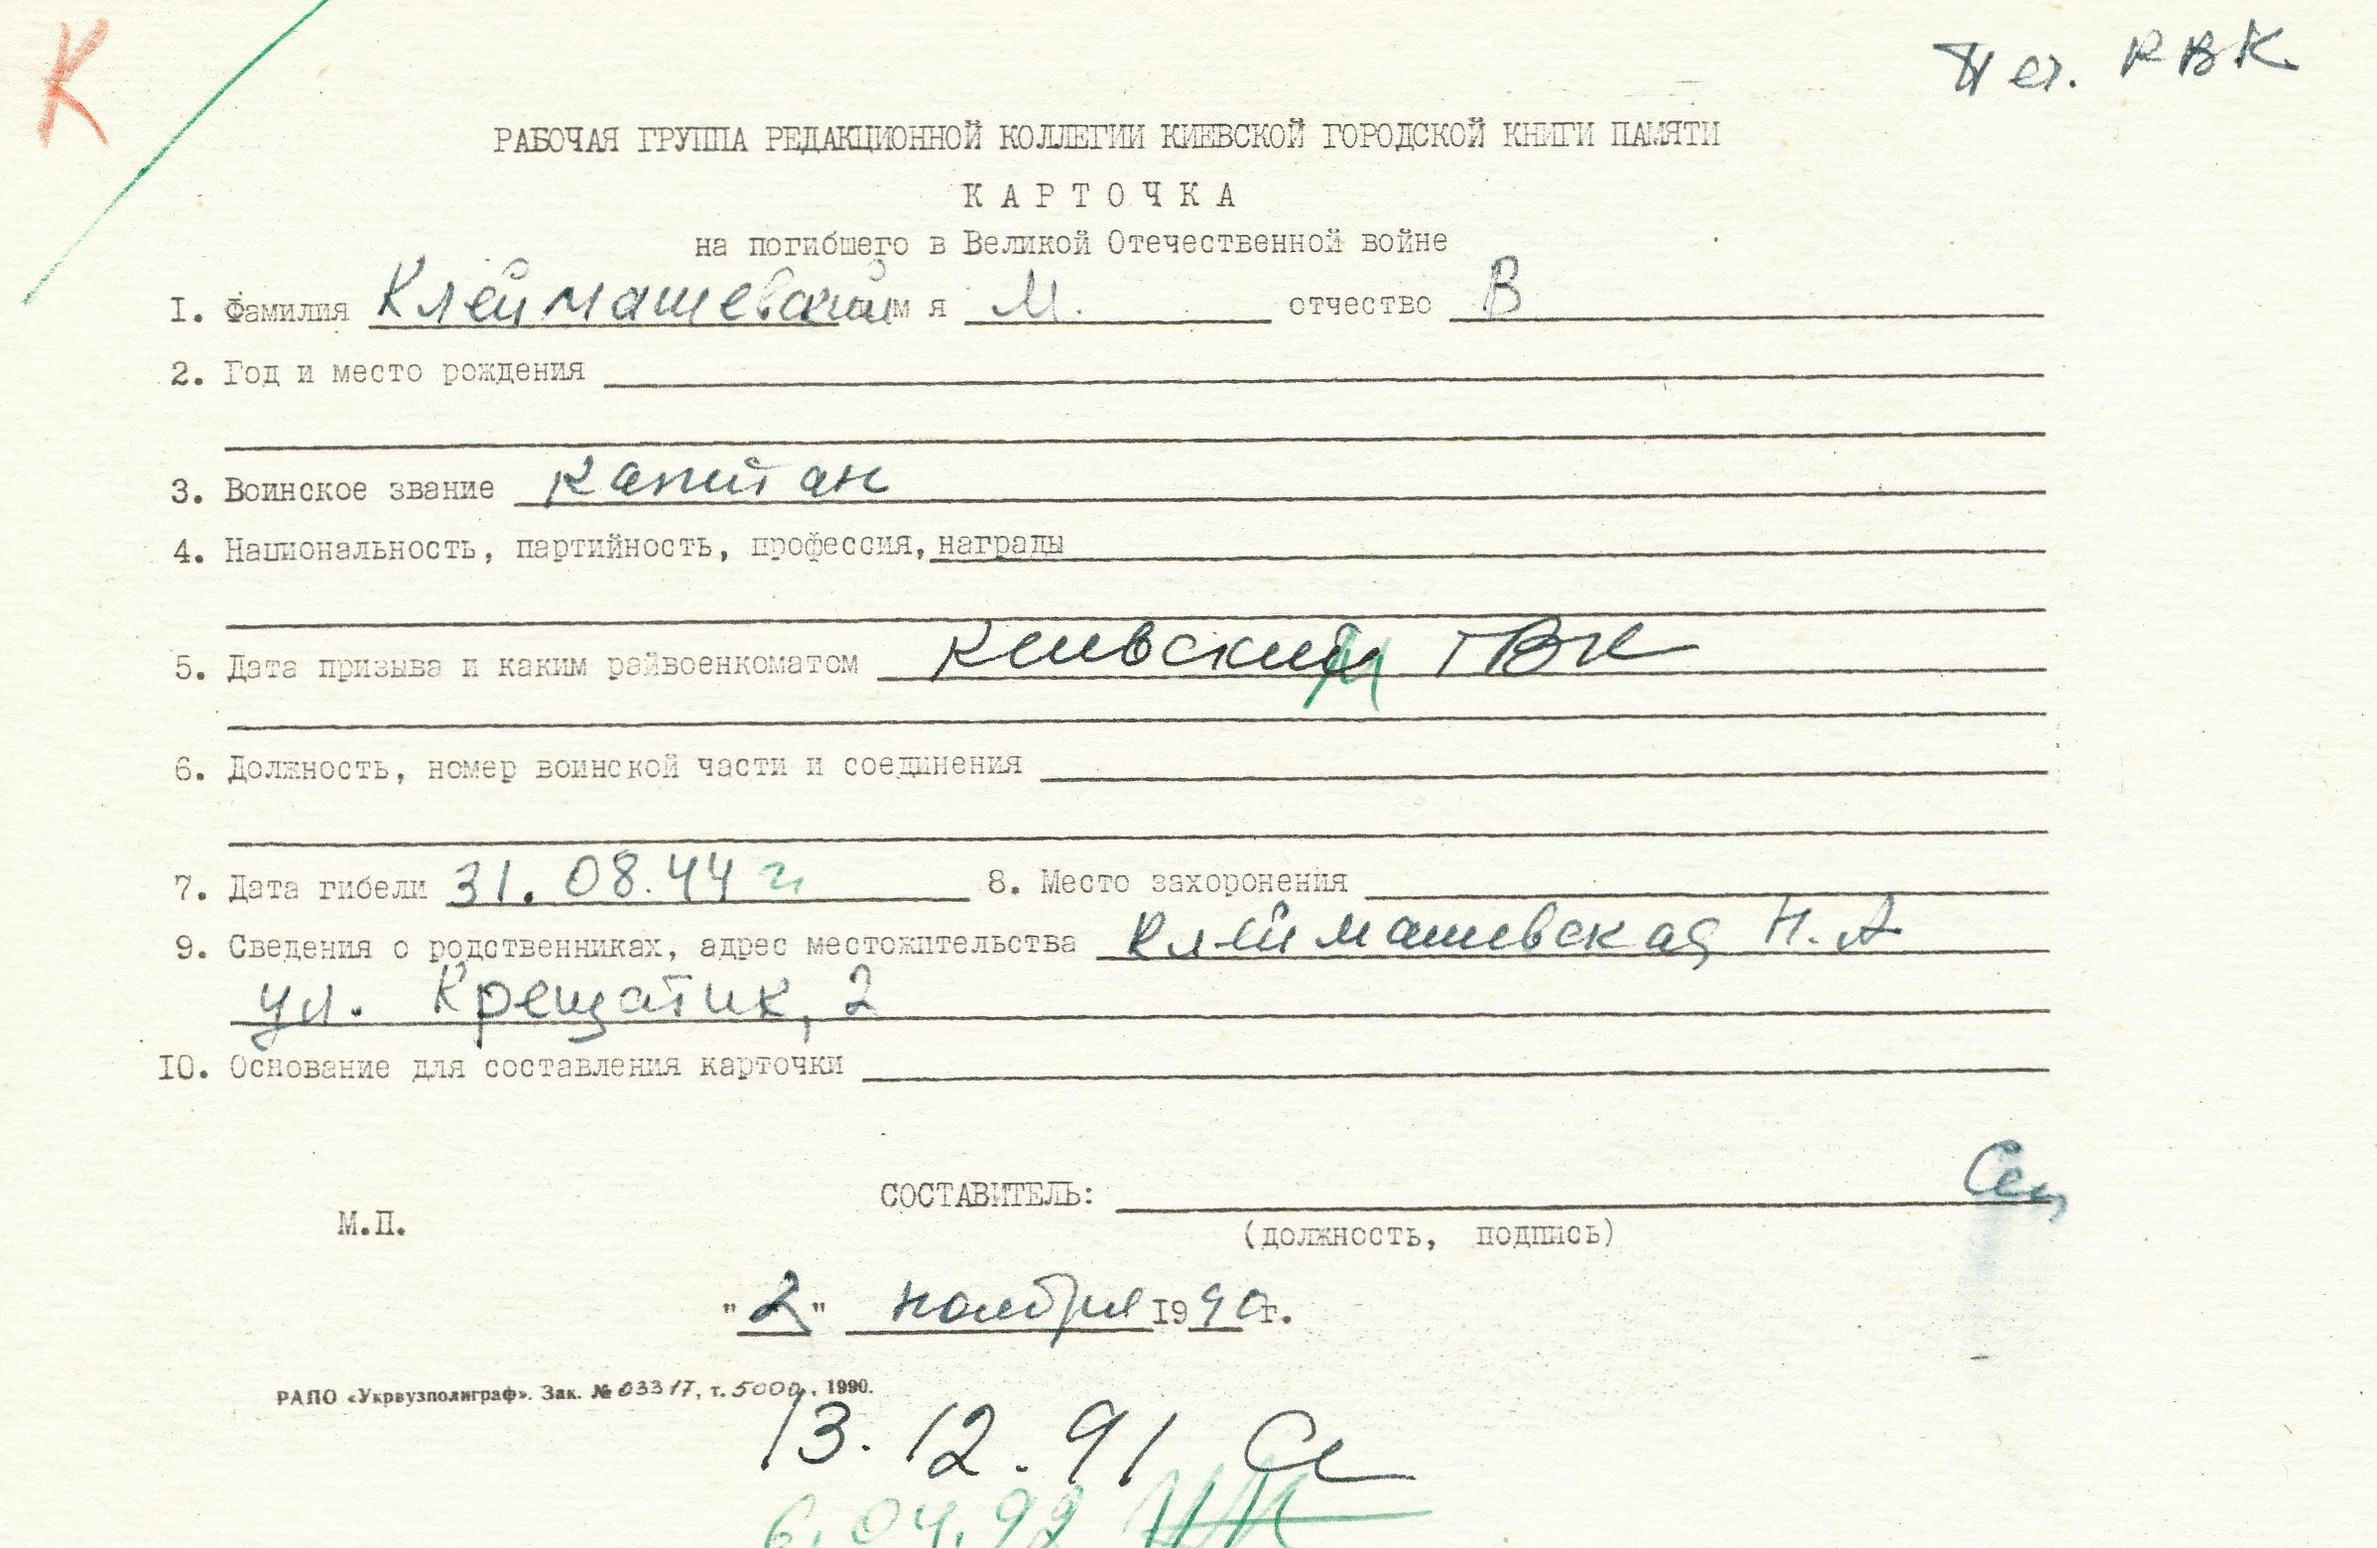 К
Печ. РВК
РАБОЧАЯ ГРУППА РЕДАКЦИОННОЙ КОЛЛЕГИИ КИЕВСКОЙ ГОРОДСКОЙ КНИГИ ПАМЯТИ
КАРТОЧКА
на погибшего в Великой Отечественной войне
I. Фамилия Клеймашевский имя М. отчество В
2. Год и место рождения
3. Воинское звание капитан
4. Национальность, партийность, профессия, награды
5. Дата призыва и каким райвоенкоматом Киевским ГВК
6. Должность, номер воинской части и соединения
7. Дата гибели 31.08.44 г. 8. Место захоронения
9. Сведения о родственниках, адрес местожительства Клеймашевская Н.А
ул. Крещатик, 2
I0. Основание для составления карточки
СОСТАВИТЕЛЬ:
М.П.
(должность, подпись)
"2" ноября I990г.
РАПО «Укрвузполиграф». Зак. № 03317, т. 5000, 1990.
13.12.91
6.04.92